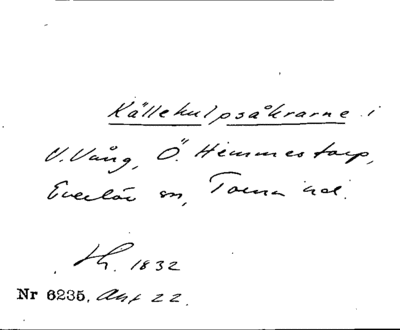 Källekulpsåkrarne i
V. Vång, Ö. Hemmestorp,
Everlöv sn, Torna hd.
Sk. 1832
Nr 6235, Akt 22.